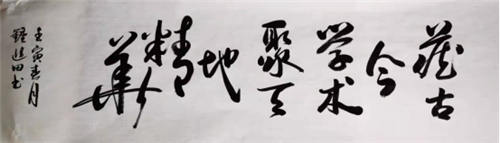 藏古
今
学术
聚天
地
精
华
壬寅春月
钟进田书